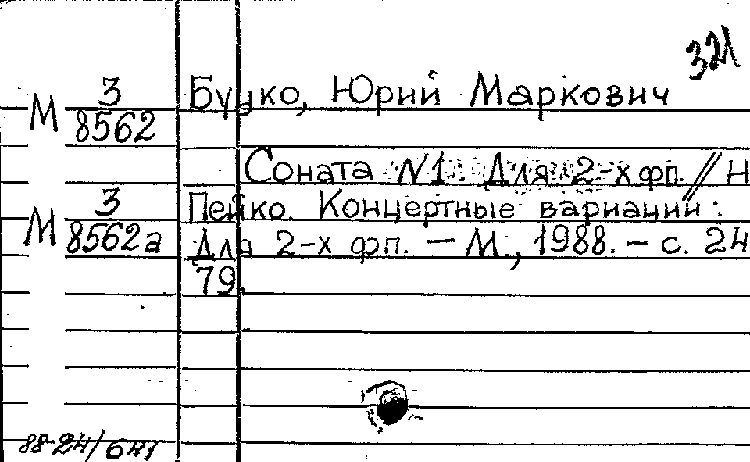 321
М 3/8562 Буцко, Юрий Маркович
Соната N1. Для 2-х фп. // Н
М 3/8562а Пейко. Концертные вариации:
Для 2-х фп. – М., 1988. – с. 24
79.
88-24/641